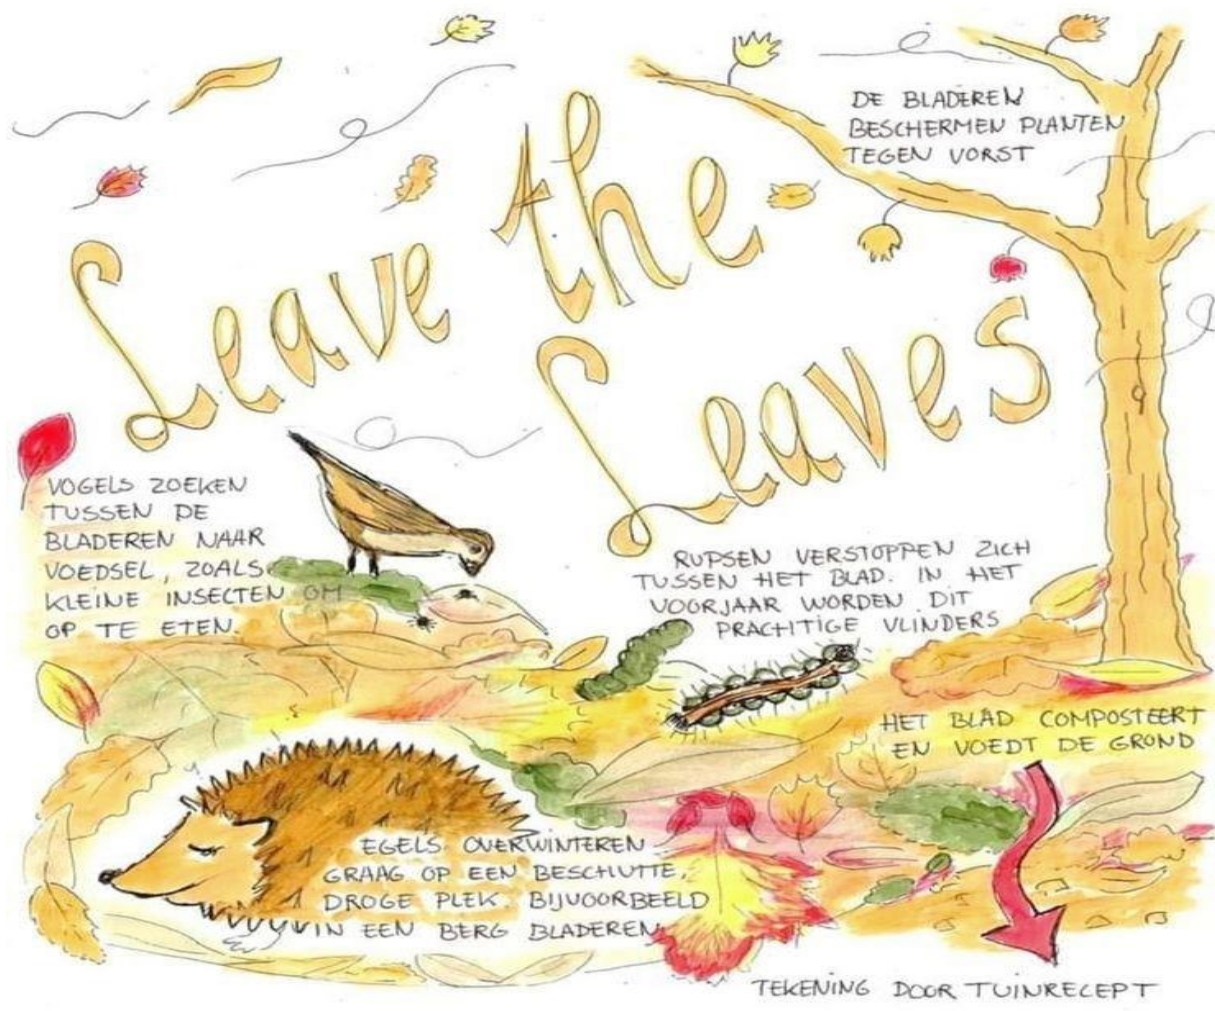 Leave the
Leaves
DE BLADEREN
BESCHERMEN PLANTEN
TEGEN VORST
VOGELS ZOEKEN
TUSSEN DE
BLADEREN NAAR
VOEDSEL, ZOALS
KLEINE INSECTEN OM
OP TE ETEN.
RUPSEN VERSTOPPEN ZICH
TUSSEN HET BLAD. IN HET
VOORJAAR WORDEN DIT
PRACHTIGE VLINDERS
HET BLAD COMPOSTEERT
EN VOEDT DE GROND
EGELS OVERWINTEREN
GRAAG OP EEN BESCHUTTE,
DROGE PLEK. BIJVOORBEELD
IN EEN BERG BLADEREN
TEKENING DOOR TUINRECEPT